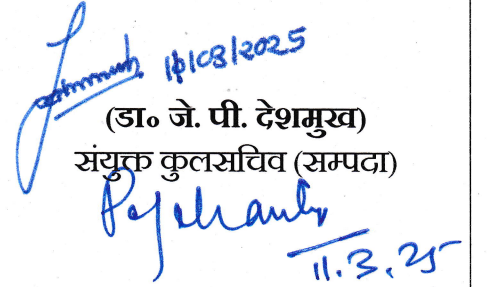 11/03/2025
(डा० जे. पी. देशमुख)
संयुक्त कुलसचिव (सम्पदा)
11.3.25